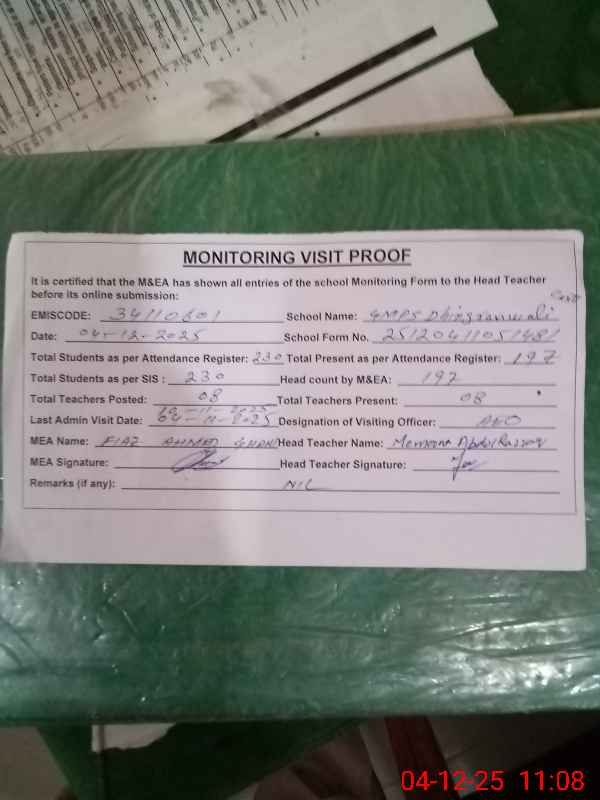 MONITORING VISIT PROOF
It is certified that the M&EA has shown all entries of the school Monitoring Form to the Head Teacher
before its online submission:
EMISCODE: 34110601 School Name: GMPS Dhingranwali
Date: 04-12-2025 School Form No. 2512041105
Total Students as per Attendance Register: 230 Total Present as per Attendance Register: 197
Total Students as per SIS : 230 Head count by M&EA: 197
Total Teachers Posted: 08 Total Teachers Present: 08
Last Admin Visit Date: Designation of Visiting Officer: AEO
MEA Name: FIAZ AHMED Head Teacher Name: Memoona Abdul Razzaq
MEA Signature: Head Teacher Signature:
Remarks (if any): NIL
04-12-25 11:08